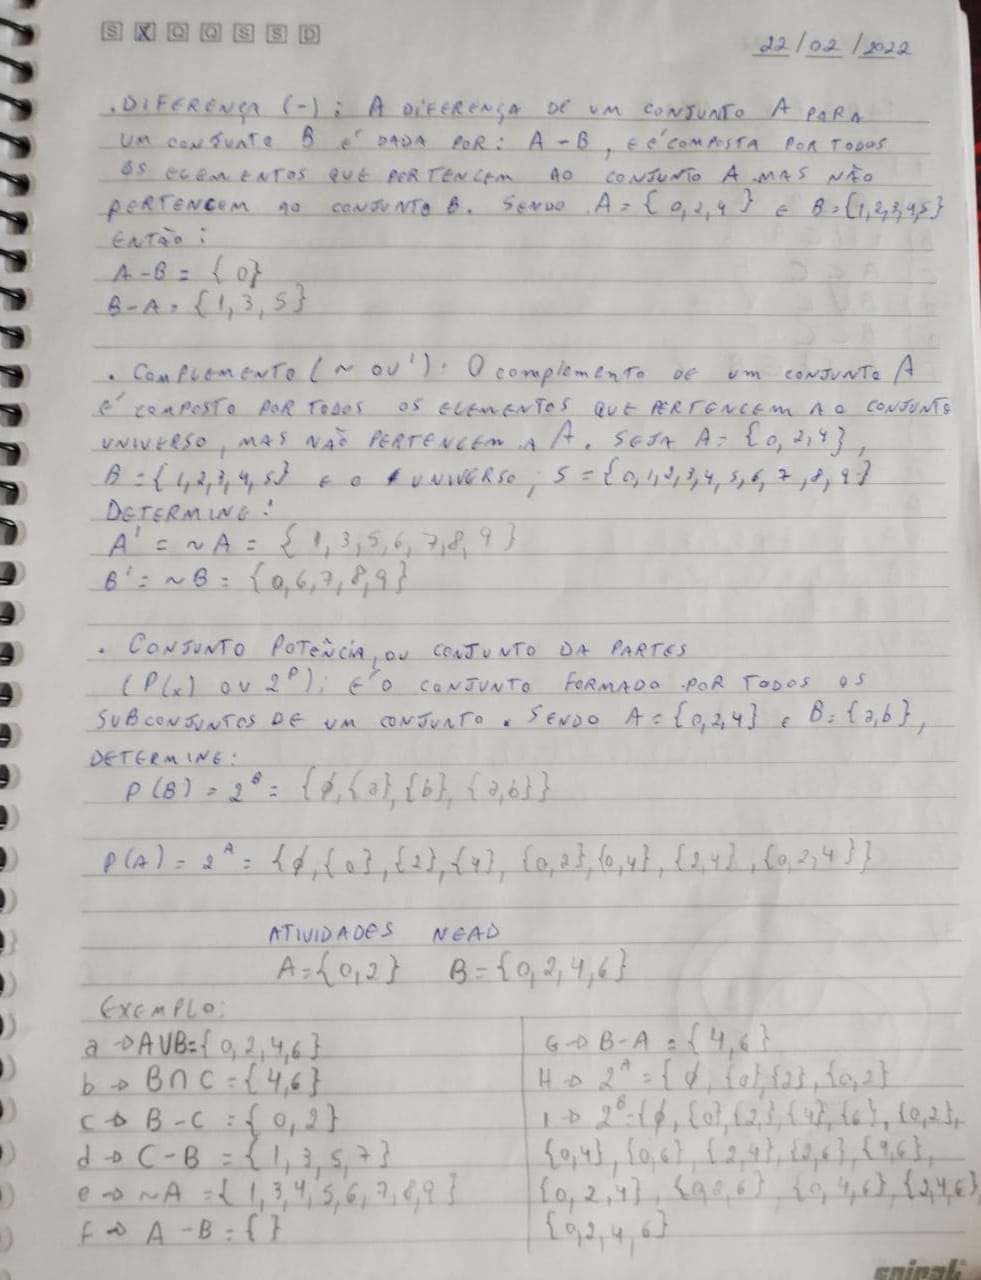 S X Q Q S S D
22/02/2022
. DIFERENÇA (-): A DIFERENÇA DE UM CONJUNTO A PARA
UM CONJUNTO B É DADA POR: A-B, E É COMPOSTA POR TODOS
OS ELEMENTOS QUE PERTENCEM AO CONJUNTO A MAS NÃO
PERTENCEM AO CONJUNTO B. SENDO A={0,2,4} E B={1,2,3,4,5}
ENTÃO:
A-B={0}
B-A={1,3,5}
. COMPLEMENTO (~ OU '): O complemento DE um CONJUNTO A
É COMPOSTO POR TODOS OS ELEMENTOS QUE PERTENCEM AO CONJUNTO
UNIVERSO, MAS NÃO PERTENCEM A A. SEJA A={0,2,4},
B={1,2,3,4,5} E O UNIVERSO, S={0,1,2,3,4,5,6,7,8,9}
DETERMINE:
A' = ~A = {1,3,5,6,7,8,9}
B' = ~B = {0,6,7,8,9}
. CONJUNTO POTÊNCIA, OU CONJUNTO DA PARTES
(P(x) OU 2^P): É O CONJUNTO FORMADO POR TODOS OS
SUBCONJUNTOS DE UM CONJUNTO. SENDO A={0,2,4} E B={a,b},
DETERMINE:
P(B) = 2^B = {ϕ,{a},{b},{a,b}}
P(A) = 2^A = {ϕ,{0},{2},{4},{0,2},{0,4},{2,4},{0,2,4}}
ATIVIDADES NEAD
A={0,2} B={0,2,4,6}
EXEMPLO:
a → A∪B={0,2,4,6}
b → B∩C={4,6}
c → B-C={0,2}
d → C-B={1,3,5,7}
e → ~A={1,3,4,5,6,7,8,9}
F → A-B={}
G → B-A={4,6}
H → 2^A={ϕ,{0}{2},{0,2}
I → 2^B={ϕ,{0},{2},{4},{6},{0,2},
{0,4},{0,6},{2,4},{2,6},{4,6},
{0,2,4},{0,2,6},{0,4,6},{2,4,6},
{0,2,4,6}
spiral